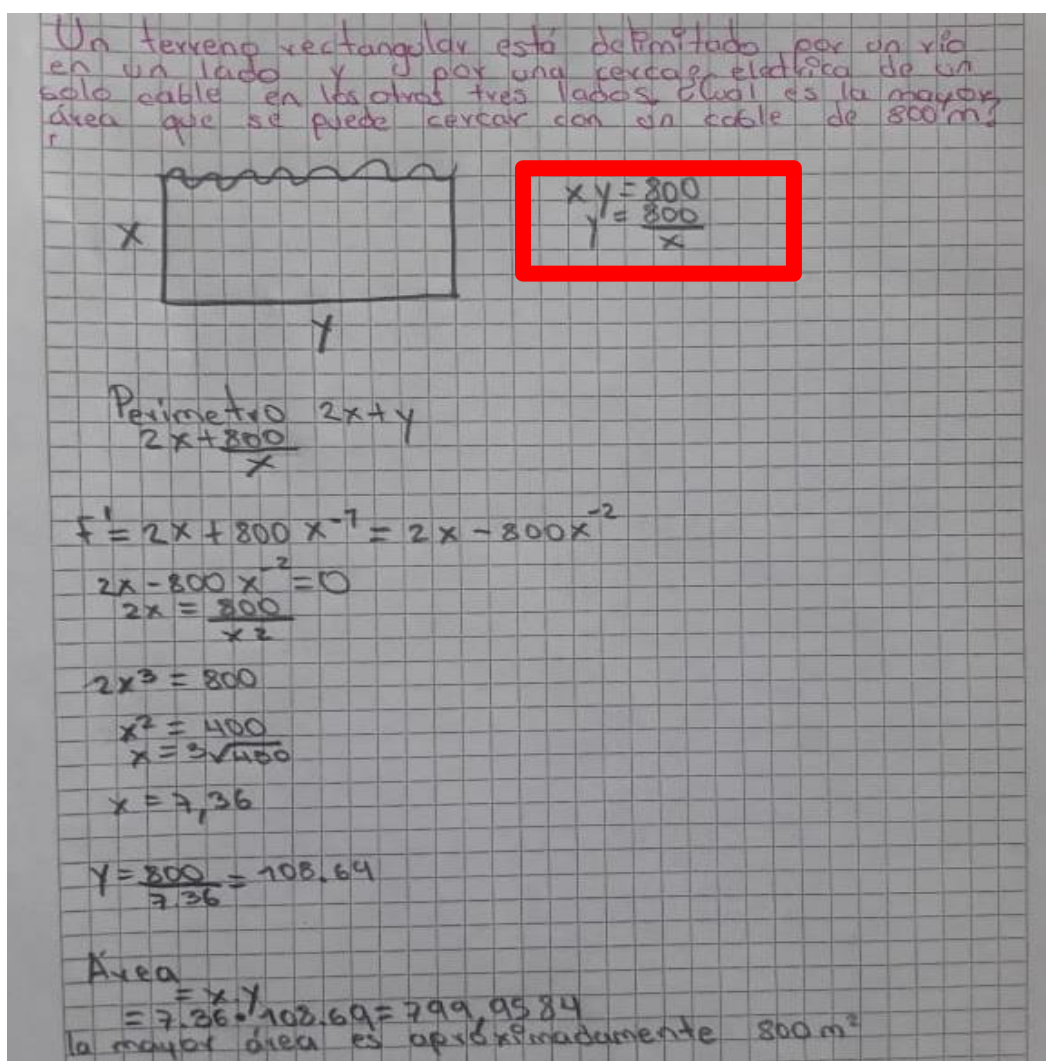 Un terreno rectangular está delimitado por un río
en un lado y por una cerca electrica de un
solo cable en los otros tres lados ¿Cuál es la mayor
área que se puede cercar con un cable de 800 m?
xy = 800
y = 800
x
X
Y
Perimetro 2x + y
2x + 800
x
f' = 2x + 800 x^-1 = 2x - 800x^-2
2x - 800 x^-2 = 0
2x = 800
x2
2x³ = 800
x² = 400
x = 3√400
x = 7,36
Y = 800 = 108.69
7,36
Área
= x.y
= 7.36 • 108.69 = 799,9584
la mayor área es apróximadamente 800 m²